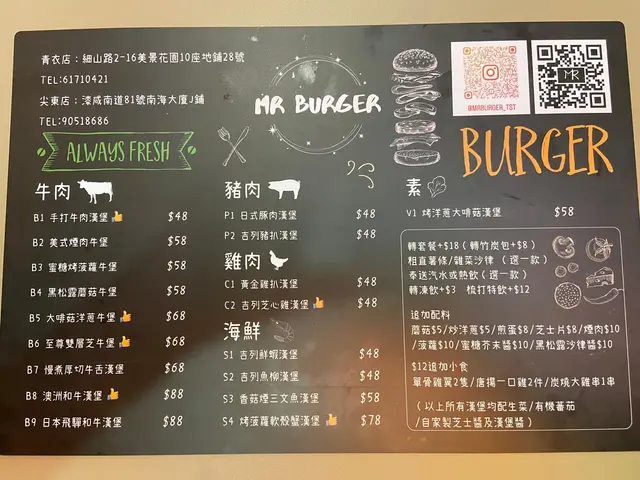 青衣店：細山路2-16美景花園10座地鋪28號
TEL:61710421
尖東店：漆咸南道81號南海大廈J鋪
TEL:90518686
MR BURGER
@MRBURGER_TST
MR
ALWAYS FRESH
BURGER
牛肉
B1 手打牛肉漢堡 $48
B2 美式煙肉牛堡 $58
B3 蜜糖烤菠蘿牛堡 $58
B4 黑松露蘑菇牛堡 $58
B5 大啡菇洋蔥牛堡 $68
B6 至尊雙層芝牛堡 $68
B7 慢煮厚切牛舌漢堡 $68
B8 澳洲和牛漢堡 $88
B9 日本飛驒和牛漢堡 $88
豬肉
P1 日式豚肉漢堡 $48
P2 吉列豬扒漢堡 $48
雞肉
C1 黃金雞扒漢堡 $48
C2 吉列芝心雞漢堡 $48
海鮮
S1 吉列鮮蝦漢堡 $48
S2 吉列魚柳漢堡 $48
S3 香菇煙三文魚漢堡 $58
S4 烤菠蘿軟殼蟹漢堡 $78
素
V1 烤洋蔥大啡菇漢堡 $58
轉套餐+$18（轉竹炭包+$8）
粗直薯條/雜菜沙律（選一款）
奉送汽水或熱飲（選一款）
轉凍飲+$3 梳打特飲+$12
追加配料
蘑菇$5/炒洋蔥$5/煎蛋$8/芝士片$8/煙肉$10
/菠蘿$10/蜜糖芥末醬$10/黑松露沙律醬$10
$12追加小食
單骨雞翼2隻/唐揚一口雞2件/炭燒大雞串1串
（以上所有漢堡均配生菜/有機蕃茄
/自家製芝士醬及漢堡醬）